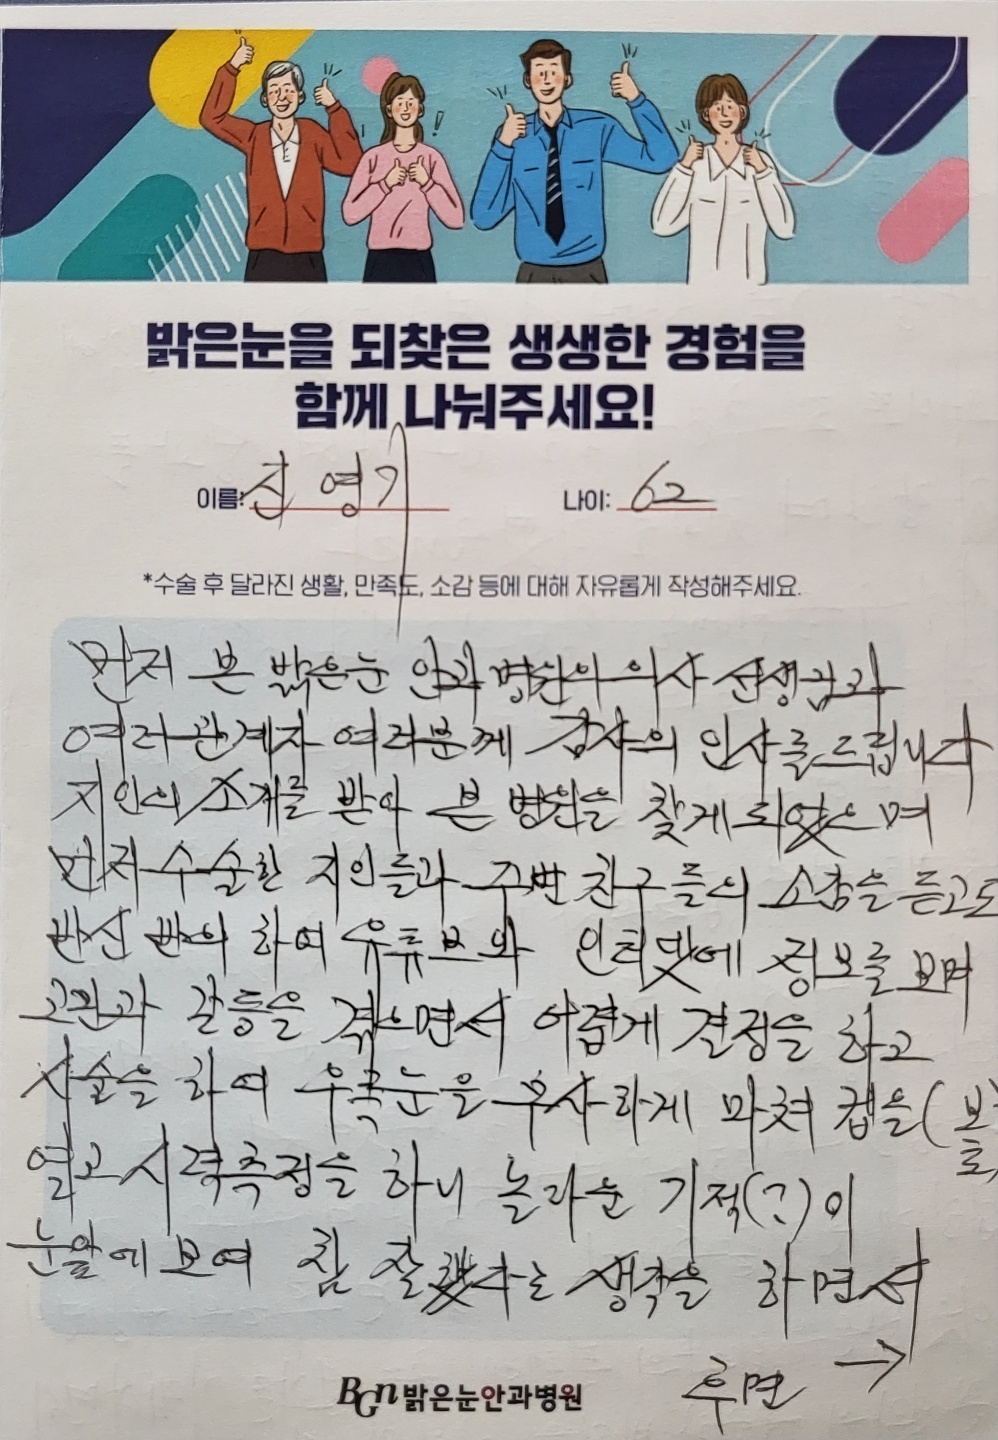 밝은눈을 되찾은 생생한 경험을
함께 나눠주세요!
이름: 영기 나이: 62
*수술 후 달라진 생활, 만족도, 소감 등에 대해 자유롭게 작성해주세요.
먼저 본 밝은눈 안과 병원의 의사 선생님과
여러 관계자 여러분께 감사의 인사를 드립니다
지인의 소개를 받아 본 병원을 찾게 되었으며
먼저 수술한 지인들과 주변 친구들의 소감을 듣고도
반신 반의 하여 유튜브와 인터넷에 정보를 보며
고민과 갈등을 겪으면서 어렵게 결정을 하고
시술을 하여 우측눈을 무사하게 마쳐 캡을(볼호)
열고 시력측정을 하니 놀라운 기적(?)이
눈앞에 보여 참 잘했다는 생각을 하면서
후면 →
BGN밝은눈안과병원